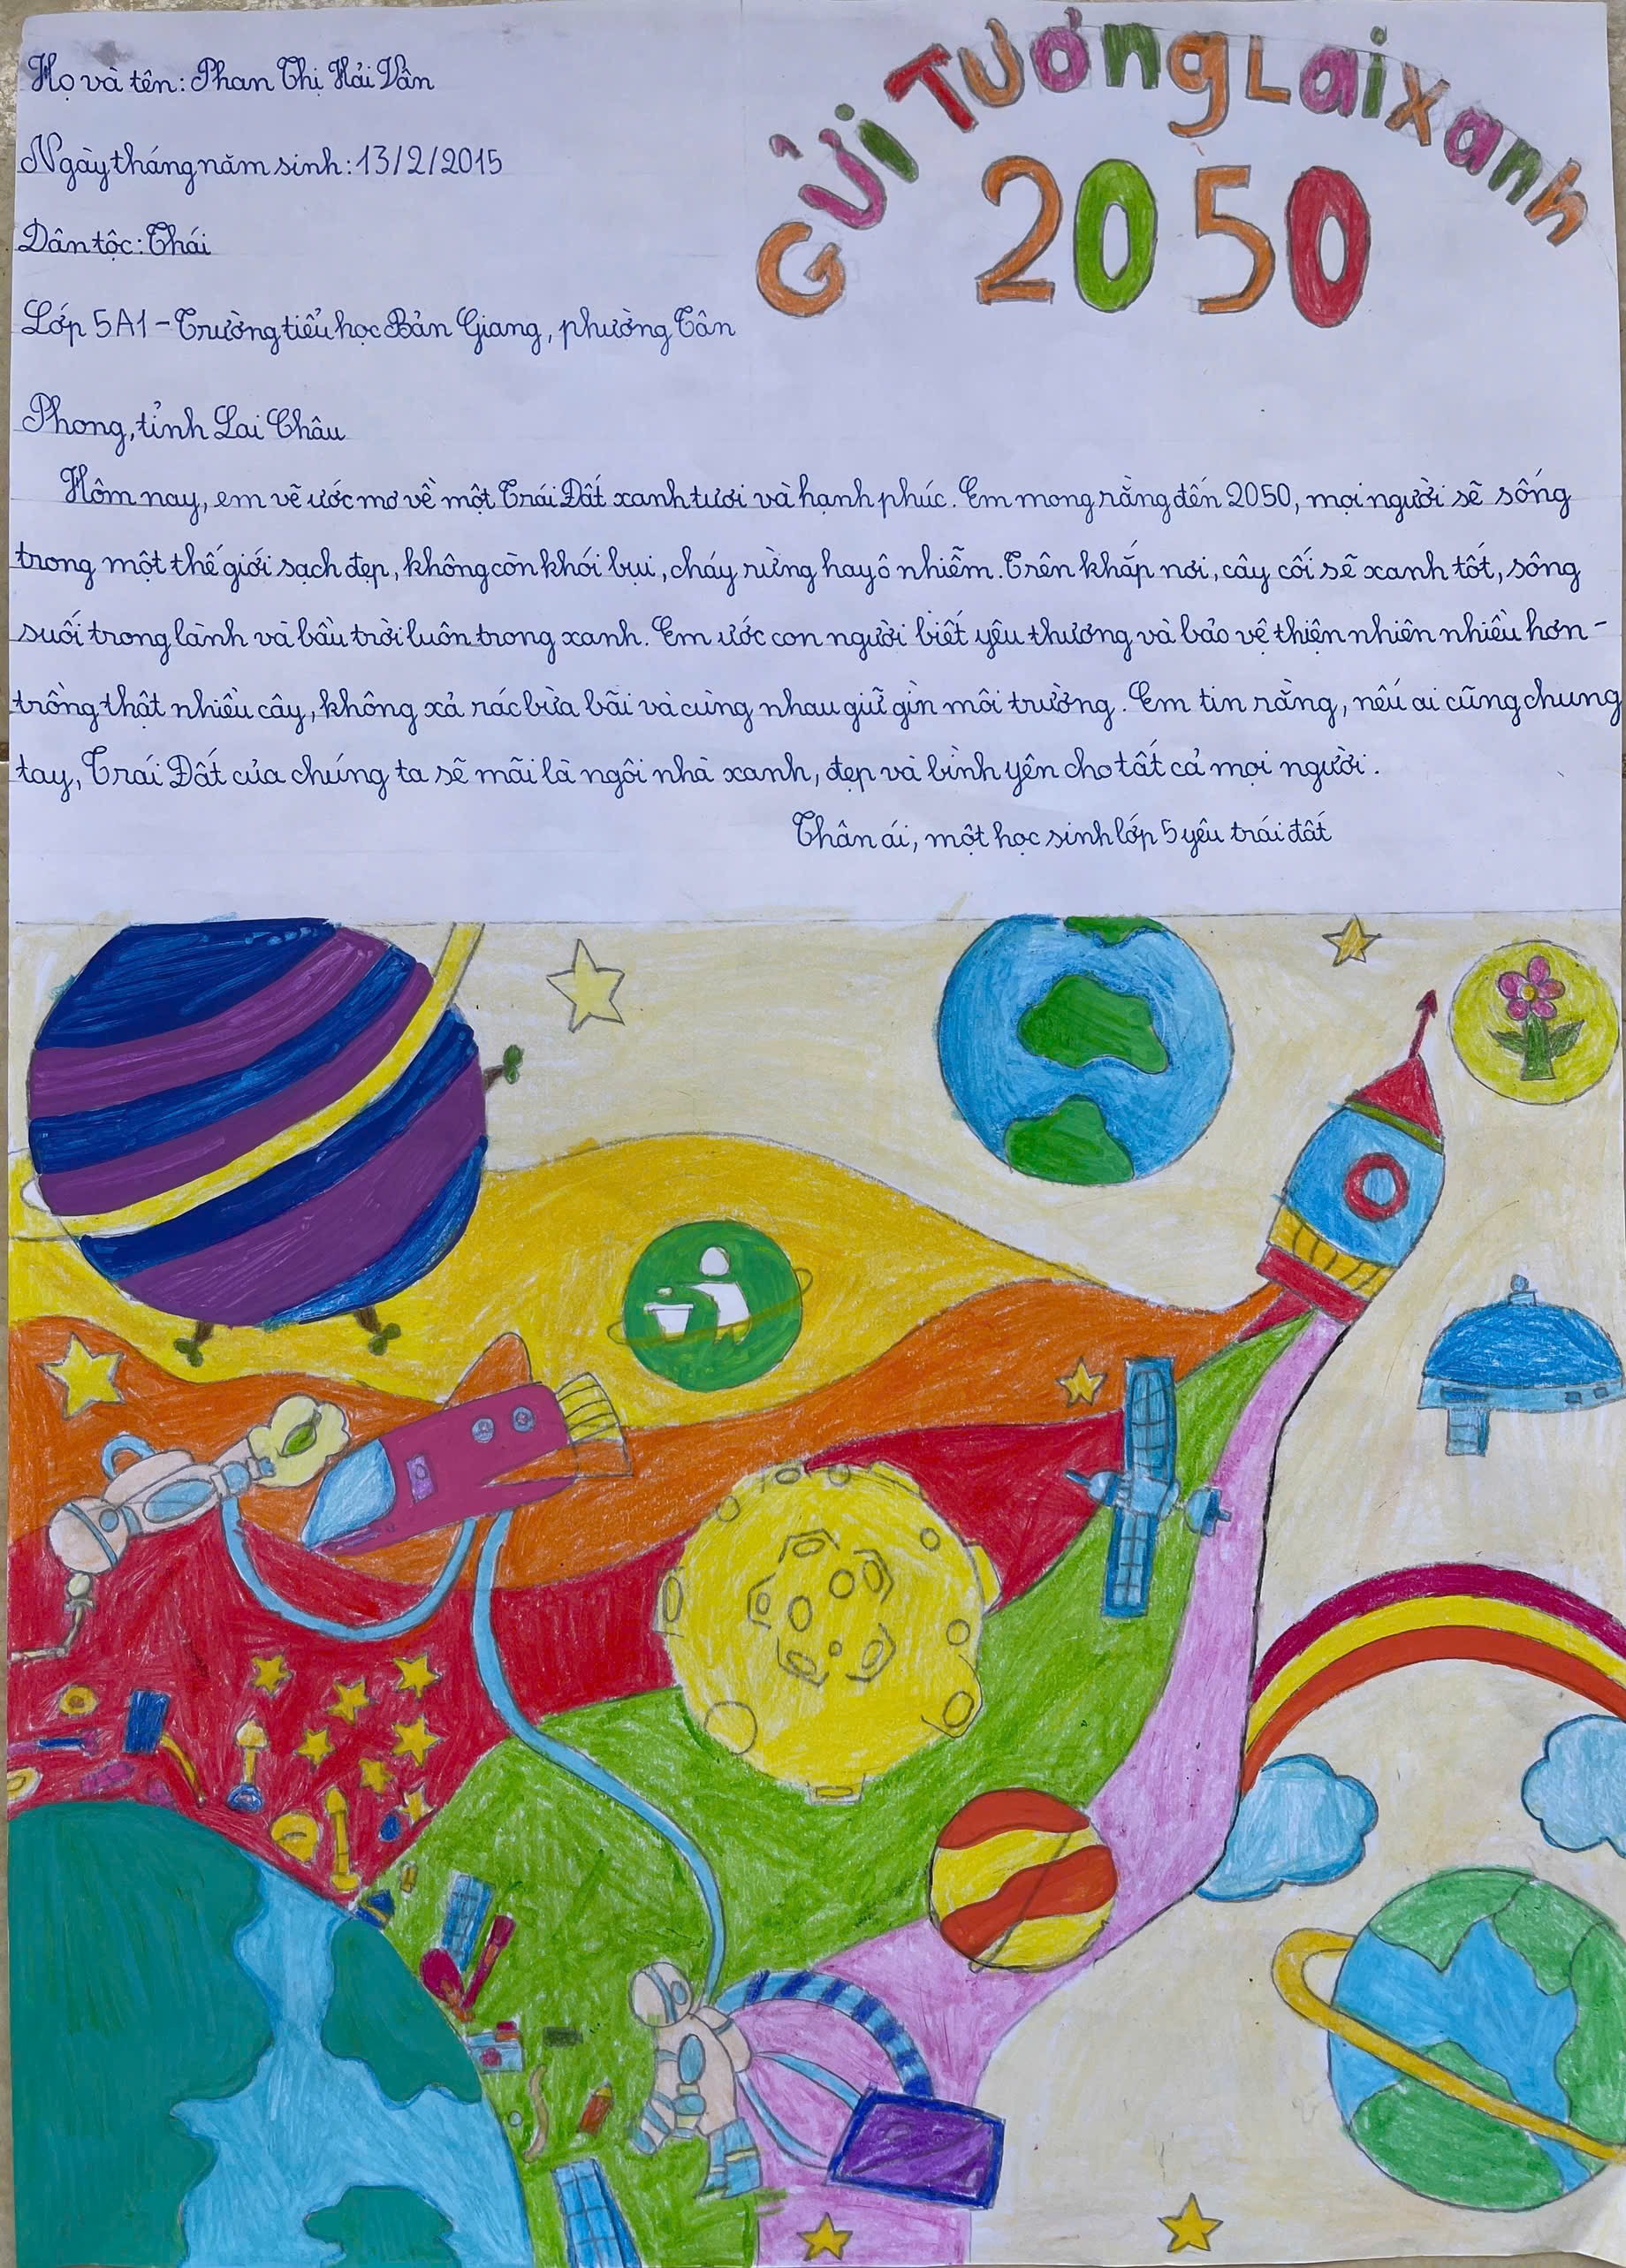 Họ và tên: Phan Thị Hải Vân
Gửi Tương Lai xanh
2050
Ngày tháng năm sinh: 13/2/2015
Dân tộc: Thái
Lớp 5A1 - Trường tiểu học Bản Giang, phường Tân
Phong, tỉnh Lai Châu
Hôm nay, em vẽ ước mơ về một Trái Đất xanh tươi và hạnh phúc. Em mong rằng đến 2050, mọi người sẽ sống
trong một thế giới sạch đẹp, không còn khói bụi, cháy rừng hay ô nhiễm. Trên khắp nơi, cây cối sẽ xanh tốt, sông
suối trong lành và bầu trời luôn trong xanh. Em ước con người biết yêu thương và bảo vệ thiên nhiên nhiều hơn -
trồng thật nhiều cây, không xả rác bừa bãi và cùng nhau giữ gìn môi trường. Em tin rằng, nếu ai cũng chung
tay, Trái Đất của chúng ta sẽ mãi là ngôi nhà xanh, đẹp và bình yên cho tất cả mọi người.
Thân ái, một học sinh lớp 5 yêu trái đất